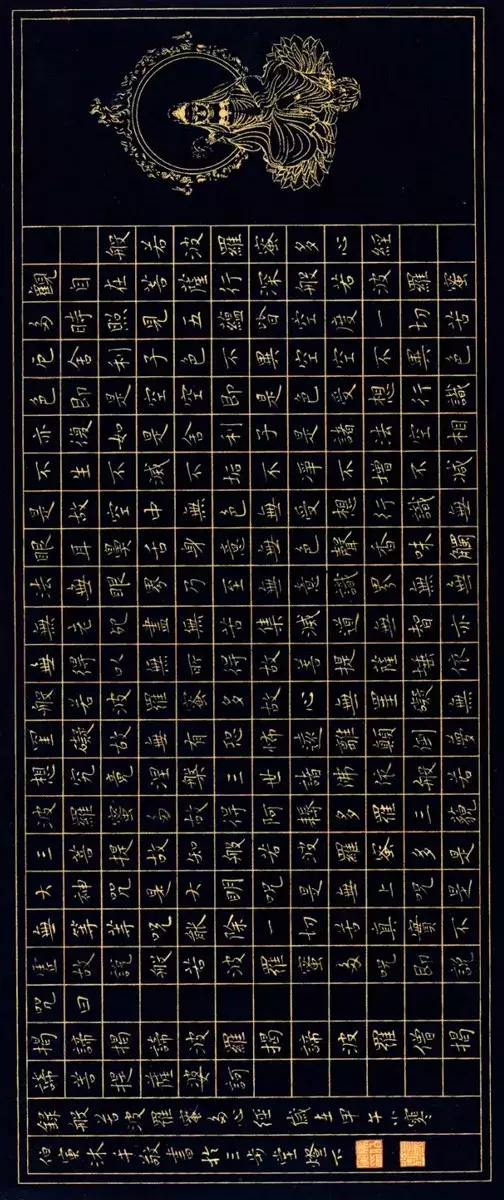 般若波羅蜜多心經
觀自在菩薩行深般若波羅蜜
多時照見五蘊皆空度一切苦
厄舍利子色不異空空不異色
色即是空空即是色受想行識
亦復如是舍利子是諸法空相
不生不滅不垢不淨不增不減
是故空中無色無受想行識無
眼耳鼻舌身意無色聲香味觸
法無眼界乃至無意識界無無
無老死盡無苦集滅道無智亦
無得以無所得故菩提薩埵依
般若波羅蜜多故心無罣礙無
罣礙故無有恐怖遠離顛倒夢
想究竟涅槃三世諸佛依般若
波羅蜜多故得阿耨多羅三藐
三菩提故知般若波羅蜜多是
大神咒是大明咒是無上咒是
無等等咒能除一切苦真實不
虛故說般若波羅蜜多咒即說
咒曰
揭諦揭諦波羅揭諦波羅僧揭
諦菩提薩婆訶
錄般若波羅蜜多心經歲在甲午小寒
伯寅沐手敬書於三尚堂燈下